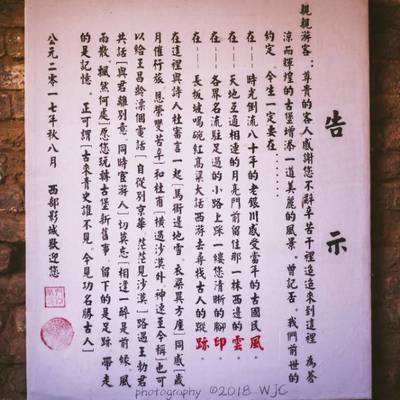 告示
親親游客：尊貴的客人感謝您不辭辛苦千裡迢迢來到這裡 為蒼
涼而輝煌的古堡增添一道美麗的風景。曾記否。我們前世的
約定。今生一定要在……
在——時光倒流八十年的老銀川感受當年的古國民風。
在——天地互通相連的月亮門前留住那一抹西邊的雲。
在——各界名流駐足過的小路上踩一縷您清晰的腳印。
在——長板坡喝碗紅高粱大話西游去尋找古人的蹤跡。
在這裡與詩人杜審言一起【馬銜邊地雪。衣染異方塵】同感【歲
月催行旅 恩榮變苦辛】和杜甫【橫過沙漠外 神速至今稱】也可
以給王昌齡漂個電話【自從別京華。茫茫見沙漠】路過王勃君
共話【與君離別意 同時宦游人】切莫忘【相逢一醉是前緣。風
雨散。飄然何處】愿您玩轉古堡新舊事 留下的是足跡 帶走
的是記憶。正可謂【古來青史誰不見。今見功名勝古人】
公元二零一七年秋八月 西部影城歡迎您
photography ©2018 WJC